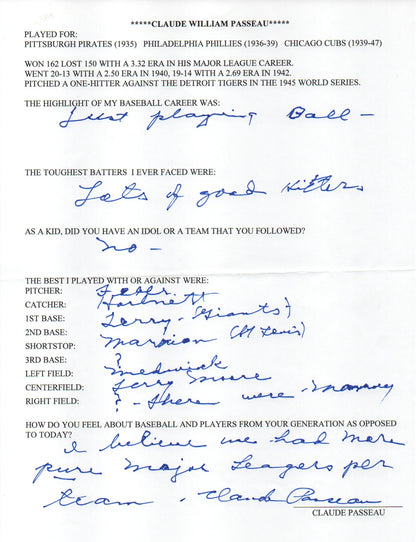 *****CLAUDE WILLIAM PASSEAU*****
PLAYED FOR:
PITTSBURGH PIRATES (1935) PHILADELPHIA PHILLIES (1936-39) CHICAGO CUBS (1939-47)
WON 162 LOST 150 WITH A 3.32 ERA IN HIS MAJOR LEAGUE CAREER.
WENT 20-13 WITH A 2.50 ERA IN 1940, 19-14 WITH A 2.69 ERA IN 1942.
PITCHED A ONE-HITTER AGAINST THE DETROIT TIGERS IN THE 1945 WORLD SERIES.
THE HIGHLIGHT OF MY BASEBALL CAREER WAS:
Just playing Ball -
THE TOUGHEST BATTERS I EVER FACED WERE:
Lots of good Hitters
AS A KID, DID YOU HAVE AN IDOL OR A TEAM THAT YOU FOLLOWED?
No -
THE BEST I PLAYED WITH OR AGAINST WERE:
PITCHER: Feller.
CATCHER: Hartnett
1ST BASE: Terry - (Giants)
2ND BASE:
SHORTSTOP: Marion (St Louis)
3RD BASE: ?
LEFT FIELD: Medwick
CENTERFIELD: Terry Moore
RIGHT FIELD: ? - there were many
HOW DO YOU FEEL ABOUT BASEBALL AND PLAYERS FROM YOUR GENERATION AS OPPOSED
TO TODAY?
I believe we had more
pure Major Leagers per
team. Claude Passeau
CLAUDE PASSEAU